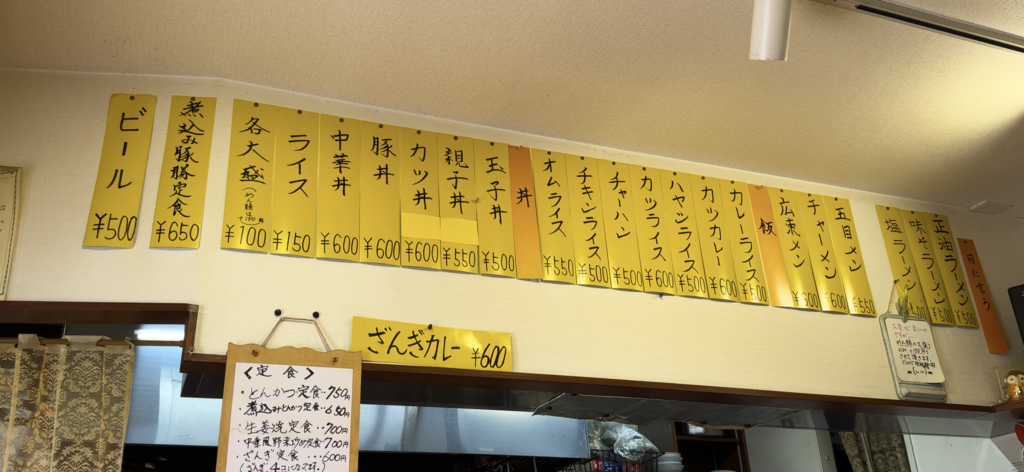 ビール
¥500
煮込み豚勝定食
¥650
各大盛
¥100
ライス
¥150
中華丼
¥600
豚丼
¥600
カツ丼
¥600
親子丼
¥550
玉子丼
¥500
丼
オムライス
¥550
チキンライス
¥500
チャーハン
¥500
カツライス
¥600
ハヤシライス
¥500
カツカレー
¥600
カレーライス
¥500
飯
広東メン
チャーメン
五目メン
塩ラーメン
味そラーメン
正油ラーメン
ざんぎカレー ¥600
<定食>
・とんかつ定食‥750円
・煮込みとんかつ定食‥650円
・生姜焼定食‥700円
・中華風野菜炒め定食‥700円
・ざんぎ定食‥‥600円
(ざんぎ4コになってます。)